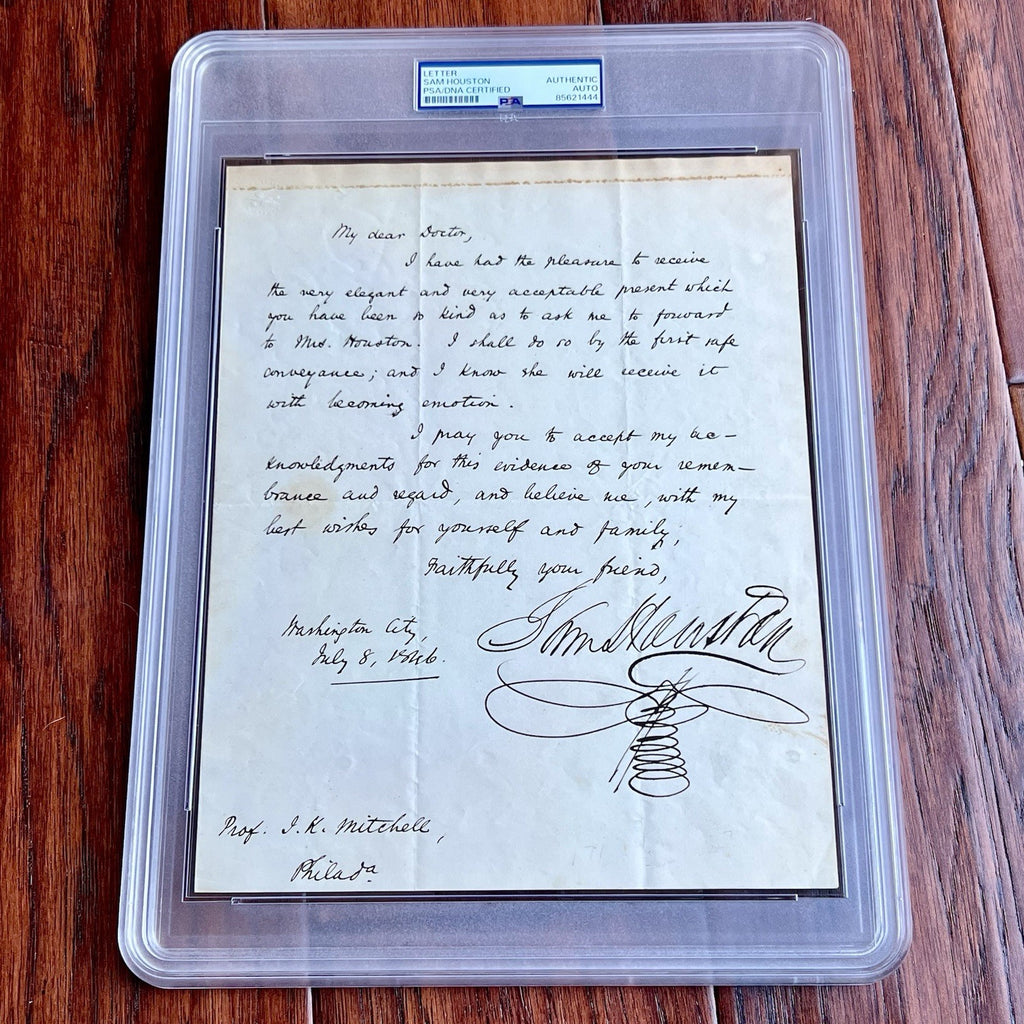 LETTER
SAM HOUSTON
PSA/DNA CERTIFIED
AUTHENTIC
AUTO
85621444
PSA
My dear Doctor,
I have had the pleasure to receive
the very elegant and very acceptable present which
you have been so kind as to ask me to forward
to Mrs. Houston. I shall do so by the first safe
conveyance; and I know she will receive it
with becoming emotion.
I pray you to accept my ac-
knowledgments for this evidence of your remem-
brance and regard, and believe me, with my
best wishes for yourself and family;
Faithfully your friend,
Sam Houston
Washington City,
July 8, 1846.
Prof. J. K. Mitchell,
Philada